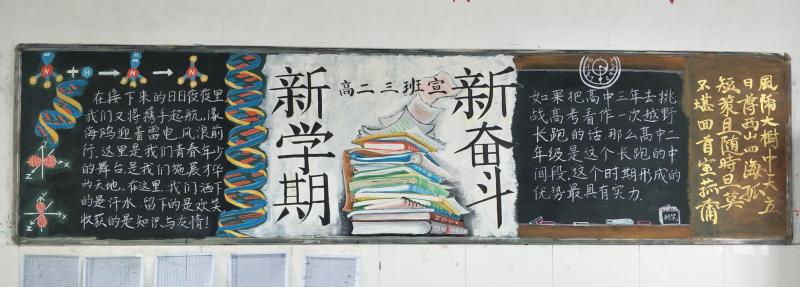 在接下来的日日夜夜里,
我们又将携手起航,像
海鸥迎着雷电、风浪前
行.这里是我们青春年少
的舞台,是我们施展才华
的天地.在这里,我们洒下
的是汗水,留下的是欢笑
收获的是知识与友情!
新学期
高二三班宣
新奋斗
如果把高中三年去挑
战高考看作一次越野
长跑的话,那么高中二
年级是这个长跑的中
间段.这个时期形成的
优势最具有实力.
風陏大樹中天方
日停西山四海孤
短蓑且随時日莫
不堪回首室燕蒲
N
H
H
N
H
H
N
H
H
Z
Z